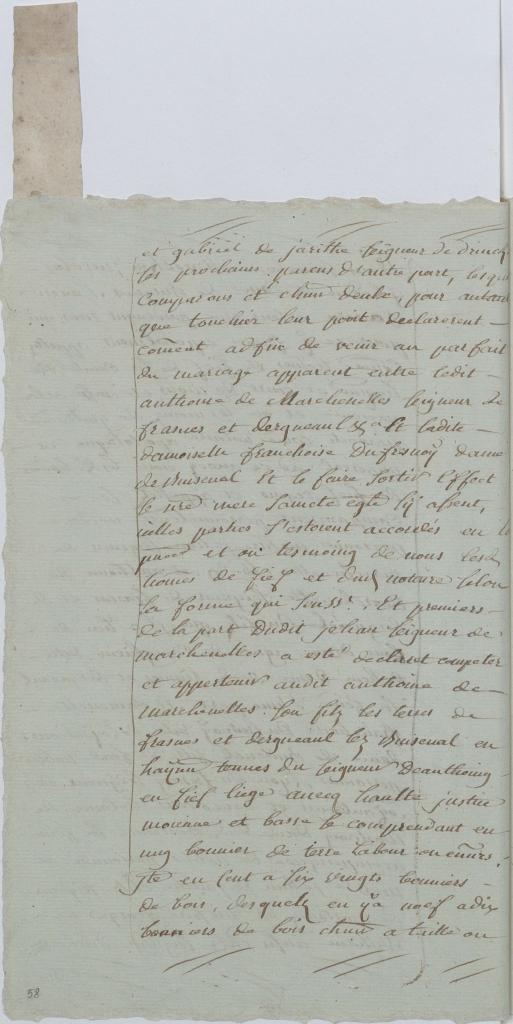 et gabriel de jarithe seigneur de
ses prochains parens d'autre part,
comparans et chun deulx, pour autant
que touchier leur poit declarerent
coment adfin de venir au parfait
du mariage apparent entre ledit
anthoine de Marchenelles seigneur de
frasnes et dergneaul &a Et ladite
damoiselle franchoise Dufresnoy dame
de buisenal Et le faire sortir Effect
se nre mere saincte egle sy assent,
icelles parties s'estoient accordés en
pnce et ou tesmoing de nous lesd
homes de fief et dud notaire selon
la forme qui senss. Et premiers
de la part Dudit jehan seigneur de
marchenelles a esté declaret competer
et appertenir audit anthoine de
marchenelles son filz les terres de
frasnes et dergneaul lez buisenal en
haynn tenues du seigneur Deanthoing
en fief liege avecq haulte justice
moienne et basse se comprendant en
ung bonnier de terre labour ou envrs.
Ite en cent a six vingts bonniers
de bois, desquelz en y a noef a dix
bonniers de bois chun a taille ou
58